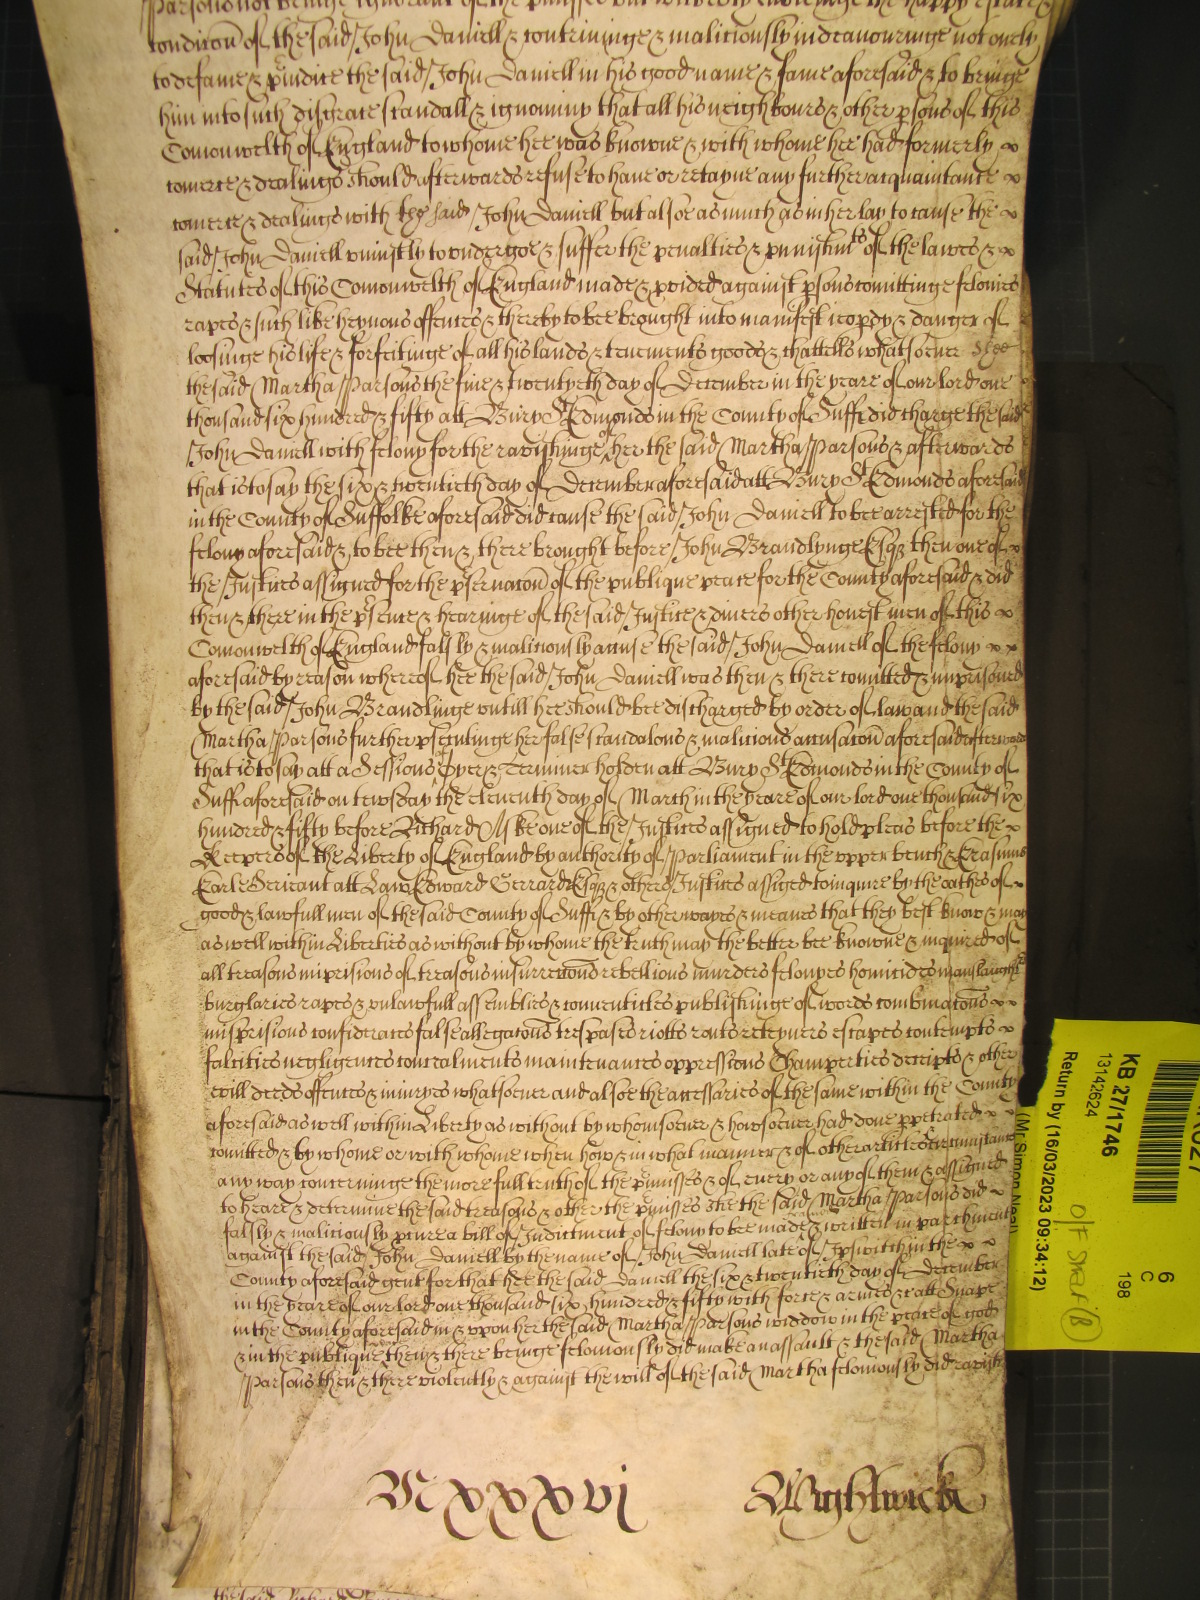 Parsons not beinge ignorant of the pmisses but wickedly envieinge the happy estate &
condicon of the said John Daniell & contriuinge & maliciously indeauouringe not onely
to defame & piudice the said John Daniell in his good name & fame aforesaid & to bringe
him into such disgrace scandall & ignominy that all his neighbours & other psons of this
Comonwelth of England to whome hee was knowne & with whome hee had formerly
comerce & dealings should afterwards refuse to haue or retayne any further acquaintance
comerce & dealings with the said John Daniell but alsoe as much as in her lay to cause the
said John Daniell uniustly to undergoe & suffer the penalties & punishmts of the lawes &
Statutes of this Comonwelth of England made & pvided against psons comittinge felonies
rapes & such like heynous offences & thereby to bee brought into manifest ieopdy & danger of
loosinge his life & forfeitinge of all his lands & tenements goods & chattells whatsoeuer Shee
the said Martha Parsons the fiue & twentyeth day of December in the yeare of our lord one
thousand six hundred & fifty att Bury St Edmonds in the County of Suff did charge the said
John Daniell with felony for the ravishinge of her the said Martha Parsons & afterwards
that is to say the six & twentieth day of December aforesaid att Bury St Edmonds aforesaid
in the County of Suffolke aforesaid did cause the said John Daniell to bee arrested for the
felony aforesaid & to bee then & there brought before John Brandlynge Esqz then one of
the Justices assigned for the pservacon of the publique peace for the County aforesaid & did
then & there in the psence & hearinge of the said Justice & diuers other honest men of this
Comonwelth of England falsly & maliciously accuse the said John Daniell of the felony
aforesaid by reason whereof hee the said John Daniell was then & there comitted & imprisoned
by the said John Brandlinge untill hee should bee discharged by order of law and the said
Martha Parsons further psecutinge her false scandalous & malicious accusacon aforesaid afterwards
that is to say att a Sessions of Oyer & Terminer holden att Bury St Edmonds in the County of
Suff aforesaid on tewsday the eleuenth day of March in the yeare of our lord one thousand six
hundred & fifty before Richard Aske one of the Justices assigned to hold pleas before the
Keepers of the Liberty of England by authority of Parliament in the upper bench & Erasmus
Earle Serieant att Law Edward Gerrard Esqz & others Justices assiged to inquire by the oathes of
good & lawfull men of the said County of Suff & by other wayes & meanes that they best know & may
as well within Liberties as without by whome the truth may the better bee knowne & inquired of
all treasons misprisions of treasons insurrections rebellious murders felonyes homicides manslaughts
burglaries rapes & unlawfull assemblies & conuenticles publishinge of words combinacons
misprisions confideraces false allegacons trespases riotts routs reteyners escapes contempts
falcities negligences concealments maintenances oppressions Champerties deceipts & other
euill deeds offences & iniuryes whatsoeuer and alsoe the accessaries of the same within the County
aforesaid as well within Liberty as without by whomsoeuer & howsoeuer had done ppetrated
comitted & by whome or with whome when how & in what manner & of other articles & circumstances
any way concerninge the more full truth of the pmisses & of euery or any of them & assigned
to heare & determine the said treasons & other the pmisses Shee the said Martha Parsons did
falsly & maliciously pcure a bill of Indictment of felony to bee made & written in parchment
against the said John Daniell by the name of John Daniell late of Ipswich in the
County aforesaid gent for that hee the said Daniell the six & twentieth day of December
in the yeare of our lord one thousand six hundred & fifty with force & armes & att Snape
in the County aforesaid in & upon her the said Martha Parsons widdow in the peace of god
& in the publique then & there beinge feloniously did make an assault & the said Martha
Parsons then & there violently & against the will of the said Martha feloniously did ravish
M xxxvi Wightwick
KB 27/1746
13142624
Return by (16/03/2023 09:34:12)
(Mr Simon Neal)
6
C
198
O/F Shelf (B)